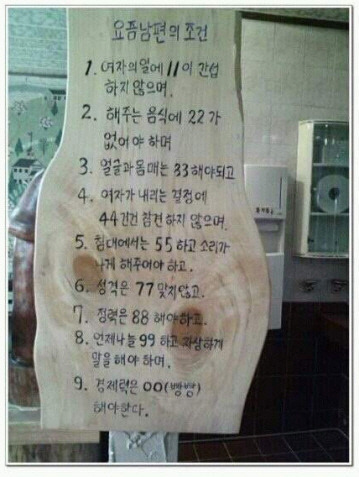 요즘남편의 조건
1. 여자의일에 11이 간섭
하지 않으며.
2. 해주는 음식에 22가
없어야 하며
3. 얼굴과몸매는 33해야되고
4. 여자가 내리는 결정에
44건건 참견 하지 않으며.
5. 침대에서는 55 하고 소리가
나게 해주어야 하고.
6. 성격은 77 맞지않고.
7. 정력은 88 해야하고.
8. 언제나늘 99 하고 자상하게
말을 해야 하며.
9. 경제력은 00(빵빵)
해야한다.